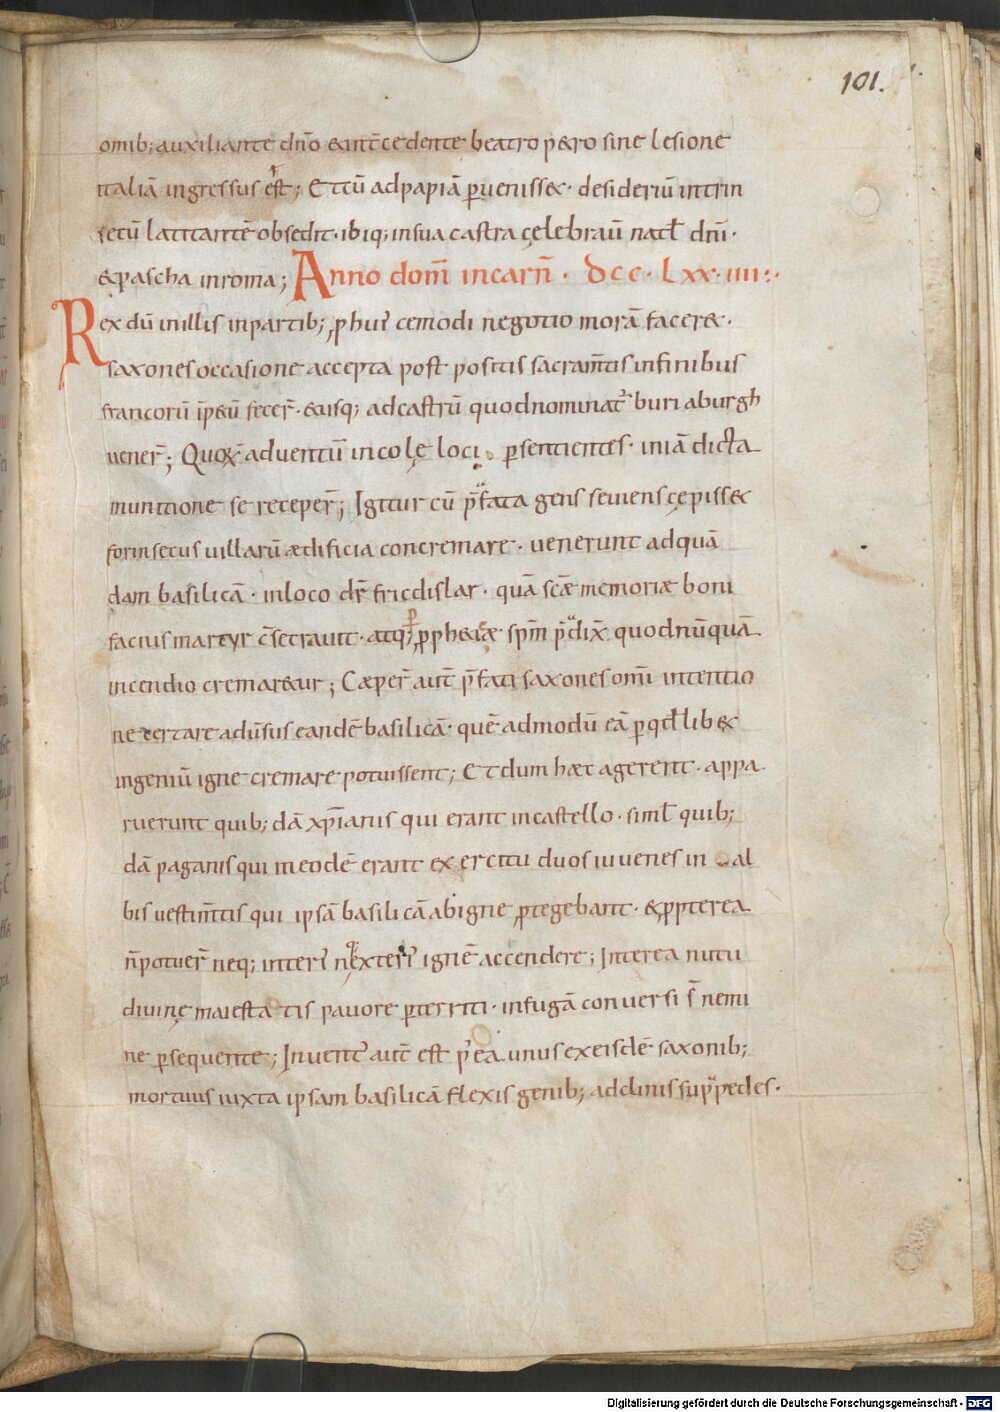 101.
omib; auxiliante dn̄o & int̄cedente beatro p&ro sine lesione
italiā ingressus est; Et cū ad papiā ꝑueniss&· desideriū intrin
secū latitantē obsedit· ibiq; in sua castra cęlebrauī natł dn̄i·
& pascha in roma; Anno dom̄ incarn̄· Dcc· Lxx· iiii:·
Rex dū in illis in partib; ꝓ hui᾽ cemodi negotio morā facer&·
saxones occasione accepta post positis sacram̄tis in finibus
francorū ip̄s& ū fecer̄· & usq; ad castrū quod nominat᾽ buriaburgh
uener̄; Quoꝝ aduentū incolę loci ꝑsentientes· in iā dicta
munitione se receper̄; Igitur cū p̄fata gens seuiens cępiss&
forinsecus uillarū ædificia concremare· uenerunt ad quā
dam basilicā· in loco dr̄ fricdislar· quā scǣ memoriæ boni
facius martyr c̄secrauit· atq; ꝓph&iæ sp̄m p̄dix̄ quod nūquā
incendio cremar&ur; Cæper̄ aut̄ p̄fati saxones om̄i intentio
ne certare adūsus eandē basilicā· quē admodū eā ꝑ qđ lib&
ingeniū igne cremare potuissent; Et dum hæc agerent· appa
ruerunt quib; dā xp̄ianis qui erant in castello· simł quib;
dā paganis qui in eodē erant exercitu duo siuuenes in al
bis uestim̄tis qui ipsā basilicā ab igne ꝓtegebant· & ꝓpterea
n̄ potuer̄ neq; interi᾽ neq; exteri᾽ ignē accendere; Interea nutu
diuinę maiestatis pauore ꝑterriti· in fugā conuersi s̄ nemi
ne ꝑsequente; Inuent᾽ aut̄ est p᾽ ea unus ex eisdē saxonib;
mortuus iuxta ipsam basilicā flexis genib; adclinis supra pedes·
Digitalisierung gefördert durch die Deutsche Forschungsgemeinschaft - DFG